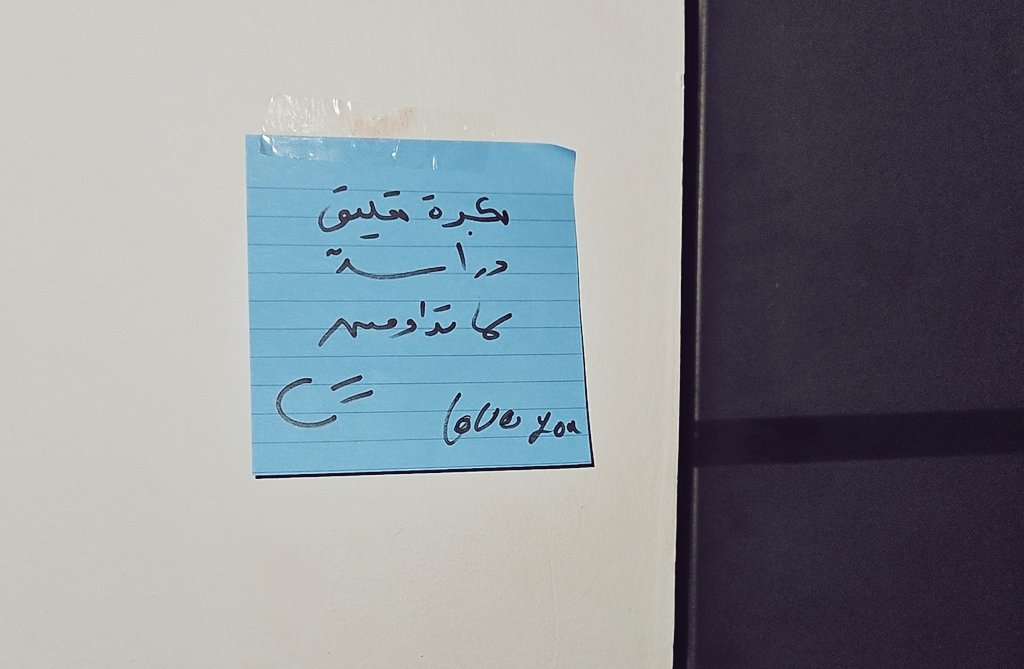 بكرة تعليق
دراسة
تداومين
love you